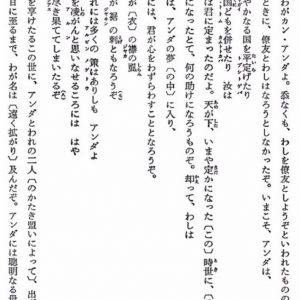 わがカン・アンダよ。忝なくも、わしを僚友としようぞといわれたもの
ときに、僚友とわしはなろうとしなかったぞ。いまこそ、アンダは、
やかなる国を平定げたり
国どもを併せたり
は君に定まったのだよ。天が下、いまや定かになった〔この〕時世に、〔
になったとて、何の助けになろうものぞ。却って、わしは
は、アンダの夢〔の中〕に入り、
には、君が心をわずらわすこととなろうぞ。
が〔衣〕の襟の虱
が裾の刺ともなろうぞ
れには多くの
ありしも アンダよ
を凌がんと思いなせるころには はや
尽き果ててしまいたるぞ
を享けたるこの世に、アンダとわれの二人〔へのかたき盟いによって〕、出
日に至るまで、わが名は〔遠く拡がり〕及んだぞ。アンダには聡明なる母